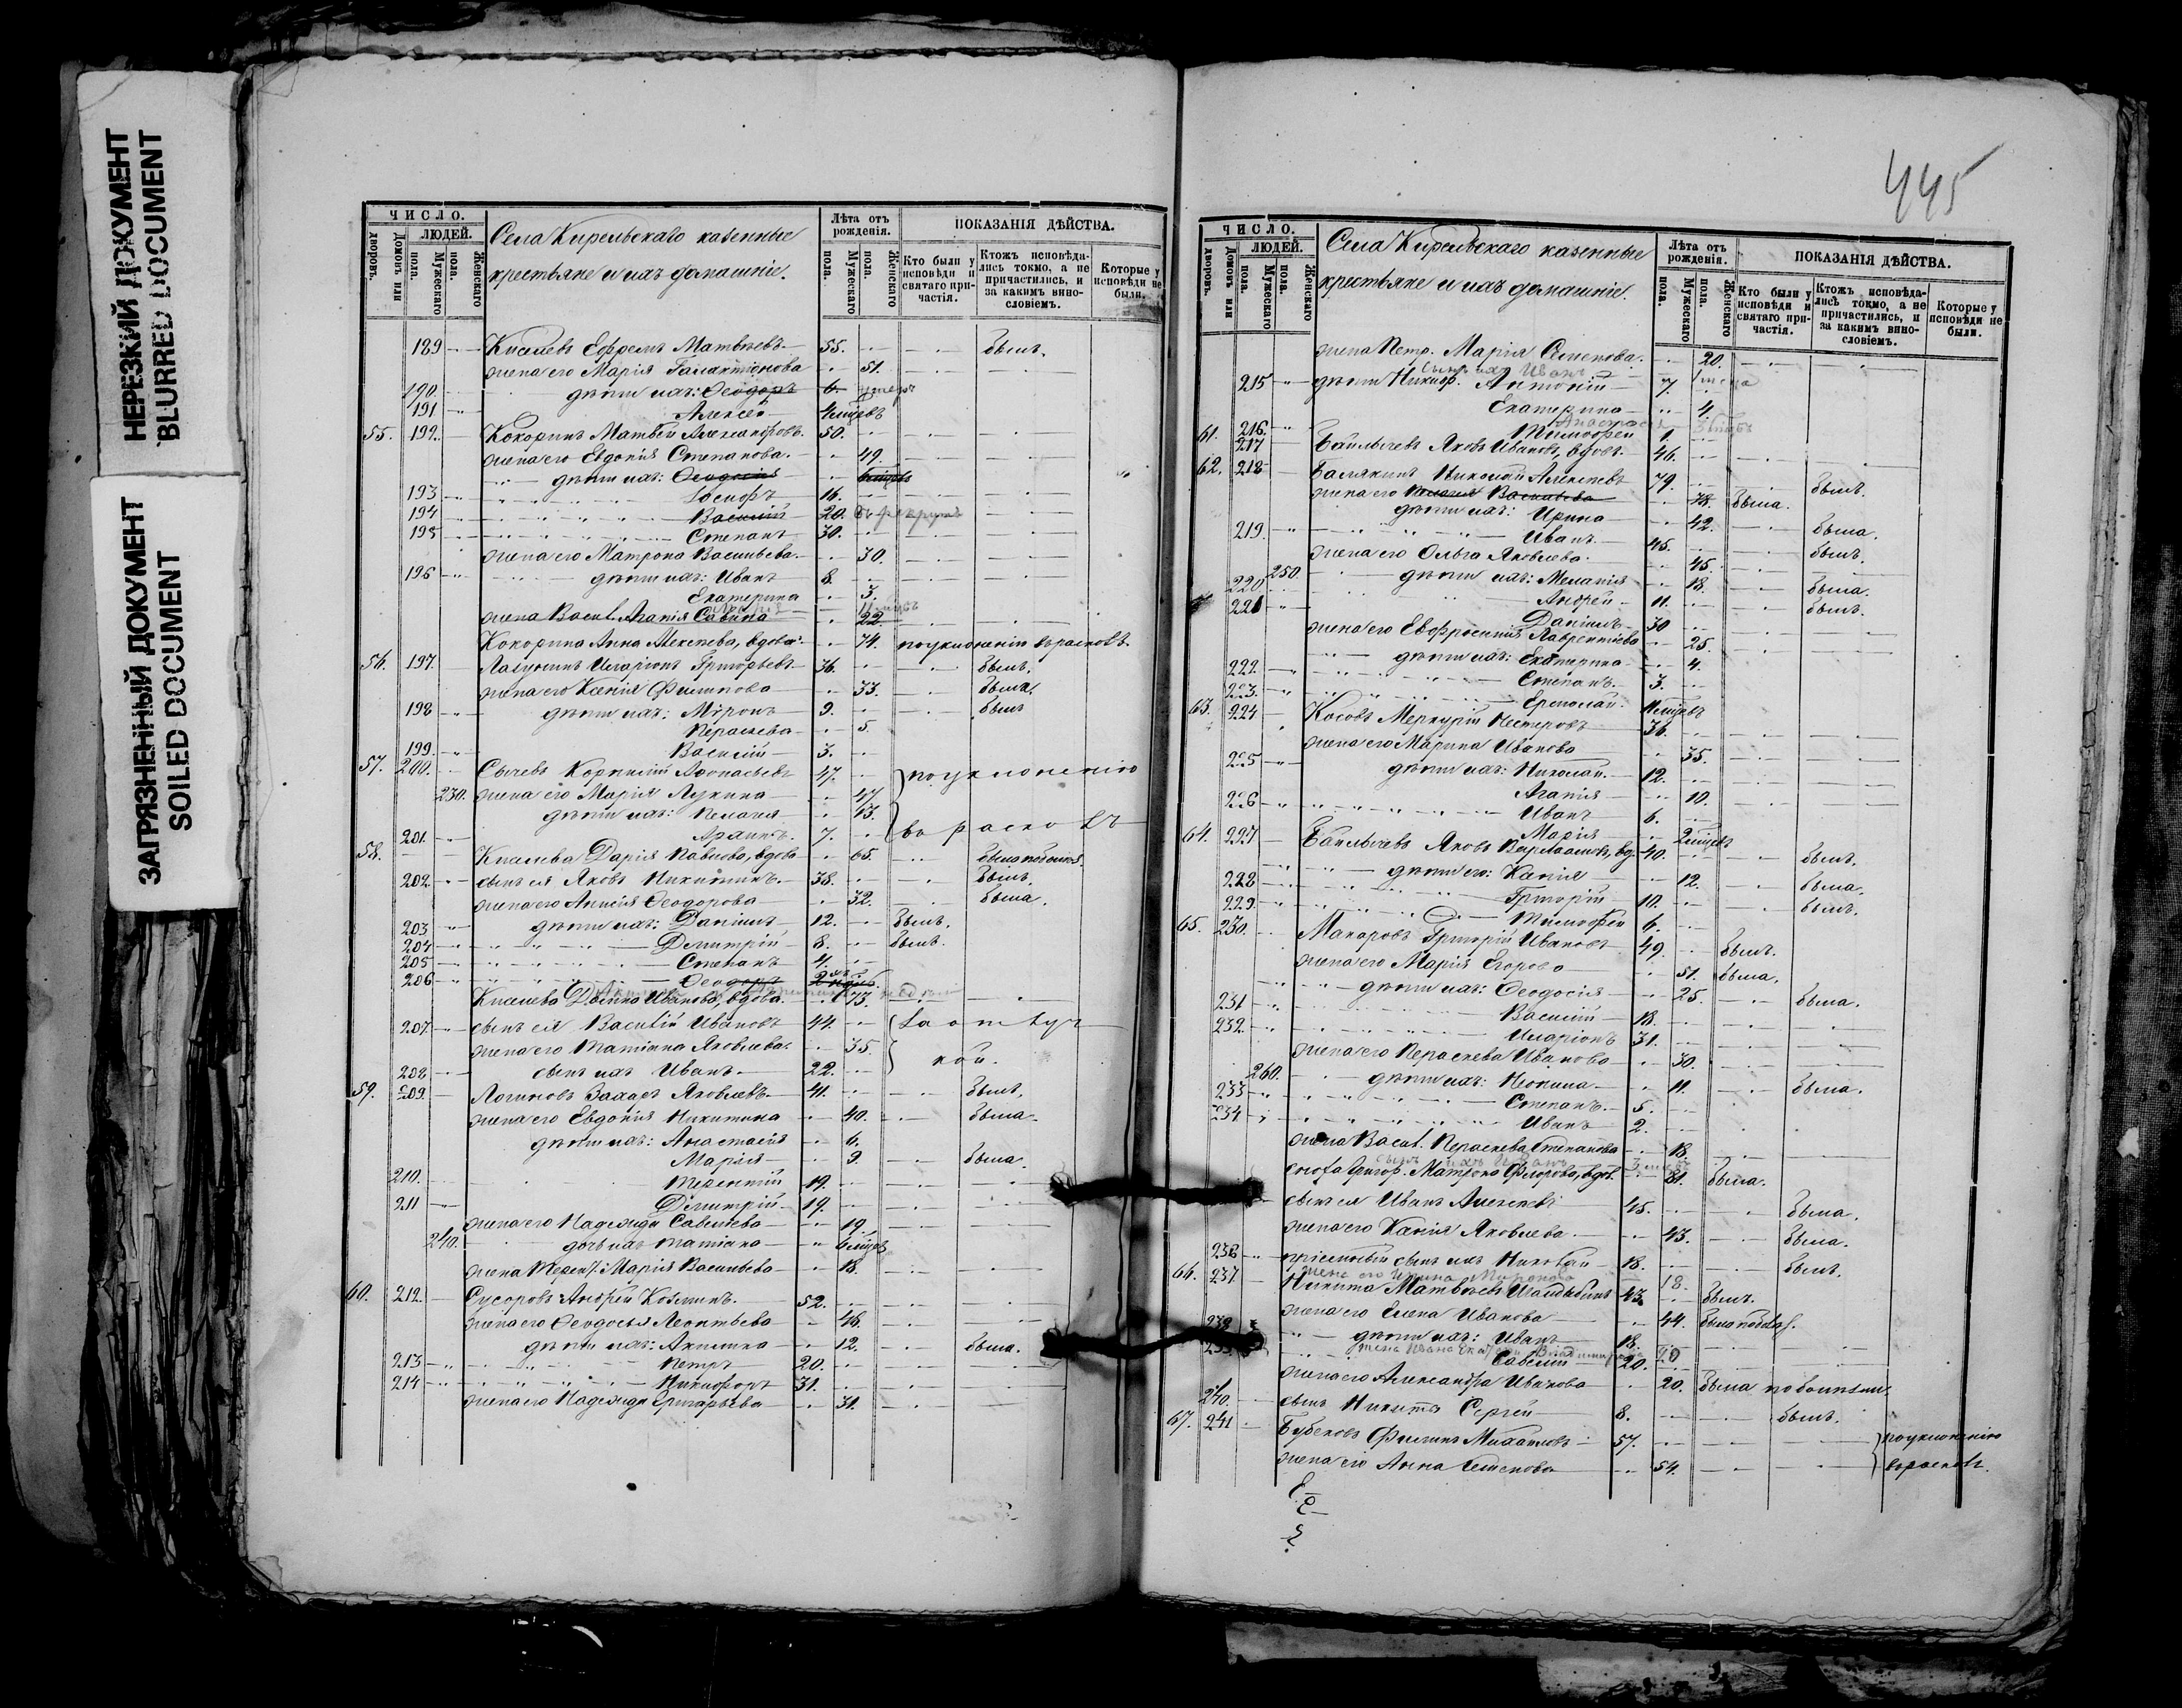 НЕРЕЗКИЙ ДОКУМЕНТ
BLURRED DOCUMENT
ЗАГРЯЗНЕННЫЙ ДОКУМЕНТ
SOILED DOCUMENT
ЧИСЛО.
ЛЮДЕЙ.
Домовъ или дворовъ.
Мужескаго пола.
Женскаго пола.
Села Кирельскаго казенные
крестьяне и ихъ домашніе.
Лѣта отъ рожденія.
Мужескаго пола.
Женскаго пола.
ПОКАЗАНІЯ ДѢЙСТВА.
Кто были у исповѣди и святаго причастія.
Ктожъ исповѣдались токмо, а не причастились, и за какимъ винословіемъ.
Которые у исповѣди не были.
189 Киселевъ Ефремъ Матвѣевъ 55. былъ.
жена его Марія Галактіонова 51.
190. дѣти ихъ: Ѳеодоръ 6. умеръ
191 Алексѣй 4 мцевъ
55. 192. Кокоринъ Матвѣй Александровъ 50.
жена его Евдокія Степанова 49.
дѣти ихъ: Ѳеодосія
193 Іосифъ 16.
194 Василій 20. въ рекрутъ
195 Степанъ 30.
жена его Матрона Васильева 30.
196 дѣти ихъ: Иванъ 8.
Екатерина 3.
жена Васил. Агапія Савина 22
Кокорина Анна Алексѣева, вдова 74. по уклоненію въ расколъ.
56. 197. Лазунинъ Иларіонъ Григорьевъ 36. былъ.
жена его Ксенія Филипова 33. была.
198 дѣти ихъ: Міронъ 9. былъ
Параскева 5.
199. Василій 3.
57. 200. Сычевъ Корнилій Аѳонасьевъ 47. по уклоненію
230. жена его Марія Лукина 47
дѣти ихъ: Пелагея 13.
201. 7. въ расколъ
58. Киселева Дарія Павлова, вдова 65.
202. сынъ ея Яковъ Никитинъ 38. былъ.
жена его Анисія Ѳеодорова 32. была.
203 дѣти ихъ: Даніилъ 12. былъ.
204 Димитрій 8. былъ.
205 Степанъ 4.
206 Ѳеодоръ
Киселева Домна Иванова, вдова 73.
207 сынъ ея Василій Ивановъ 44. за отлуч
жена его Татіана Яковлева 35.
208 сынъ ихъ Иванъ 22. кой.
59. 209. Логиновъ Захаръ Яковлевъ 41. былъ.
жена его Евдокія Никитина 40. была.
дѣти ихъ: Анастасія 6.
Марія 9. была.
210. Терентій 19.
211 Димитрій 19.
жена его Надежда Савельева 19.
240. дочь ихъ Татіана 6 мцевъ
жена Терен. Марія Васильева 18.
60. 212. Сусоровъ Андрей Козминъ 52.
жена его Ѳеодосья Леонтьева 46.
дѣти ихъ: Акилина 12. была.
213 Петръ 20.
214 Никифоръ 31.
жена его Надежда Григорьева 31.
445
ЧИСЛО.
ЛЮДЕЙ.
Домовъ или дворовъ.
Мужескаго пола.
Женскаго пола.
Села Кирельскаго казенные
крестьяне и ихъ домашніе.
Лѣта отъ рожденія.
Мужескаго пола.
Женскаго пола.
ПОКАЗАНІЯ ДѢЙСТВА.
Кто были у исповѣди и святаго причастія.
Ктожъ исповѣдались токмо, а не причастились, и за какимъ винословіемъ.
Которые у исповѣди не были.
жена Петр. Марія Семенова 20.
сынъ ихъ Иванъ
215 дѣти Никиф. Антоній 7.
Екатерина 4.
Анастасія
216. Тимофей 1.
61. 217 Яковъ Ивановъ, вдовъ 46.
62. 218 Балякинъ Николай Алексѣевъ 79. былъ.
жена его Васильева 78. была.
дѣти ихъ: Ирина 42. была.
219. Иванъ 45. былъ.
жена его Ольга Яковлева 45.
250. дѣти ихъ: Меланія 18. была.
220 Андрей 11. былъ.
221 Даніилъ 30
жена его Евфросинія Лаврентіева 25.
дѣти ихъ: Екатерина 4.
222. Степанъ 3.
223. Ермолай
63. 224 Косовъ Меркурій Нестеровъ 36.
жена его Марина Иванова 35.
225 дѣти ихъ: Николай 12.
Агапія 10.
226 Иванъ 6.
Марія 2 мцевъ
64. 227 Яковъ Варлаамовъ, вд. 40. былъ.
дѣти его: Ксенія 12. была.
228 Григорій 10. былъ.
229. Тимофей 6.
65. 230. Макаровъ Григорій Ивановъ 49. былъ.
жена его Марія Егорова 51. была.
дѣти ихъ: Ѳеодосія 25. была.
231 Василій 18.
232. Иларіонъ 31.
жена его Параскева Иванова 30.
260. дѣти ихъ: 11. была.
233 Степанъ 5.
234 Иванъ 2.
жена Васил. Параскева Степанова 18.
сынъ ихъ Иванъ
сноха Григор. Матрона Флорова, вдов. 81. была.
сынъ ея Иванъ Алексѣевъ 45. была.
жена его Ксенія Яковлева 43. была.
236 пріемный сынъ ихъ Николай 18. былъ.
жена его Ирина Миронова 18.
66. 237 Никита Матвѣевъ 43. былъ.
жена его Елена Иванова 44.
238 дѣти ихъ: Иванъ 18.
жена Ивана Екатер. Владимирова 20
Савелій 20.
жена его Александра Иванова 20. была по болѣзни
240. сынъ Никиты Сергей 8. былъ.
67. 241 Бубековъ Филипъ Михайловъ 57. по уклоненію
жена его Анна 54. въ расколъ.